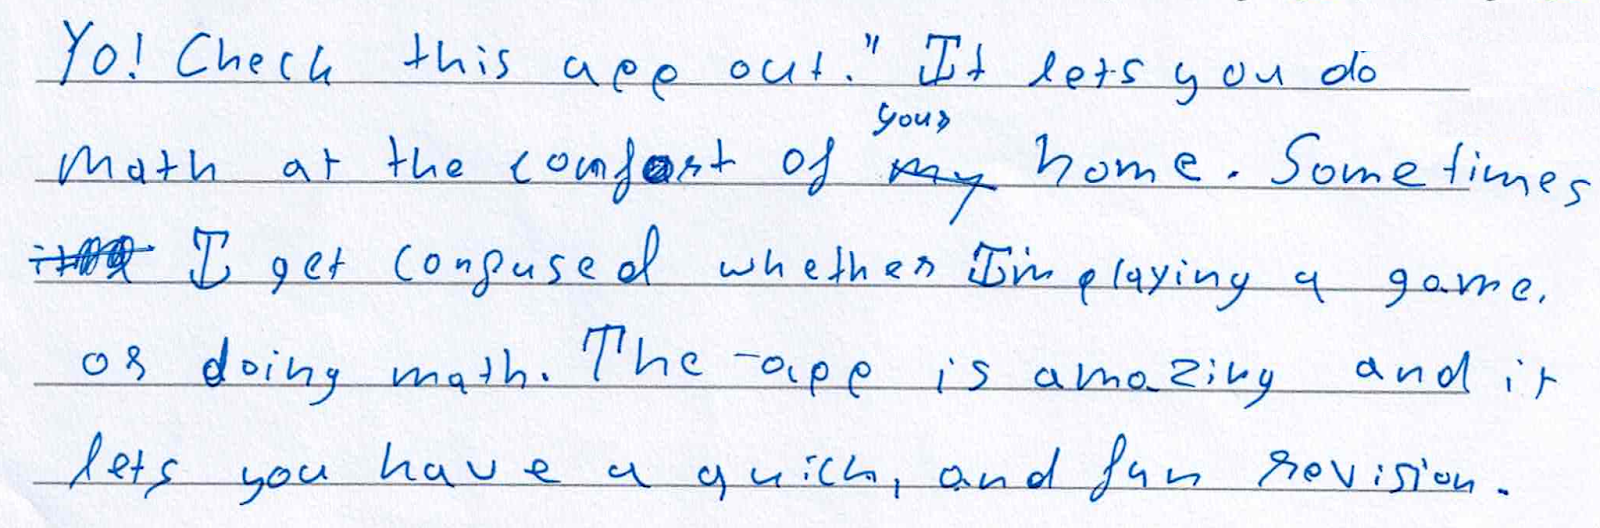 Yo! Check this app out." It lets you do
your
math at the comfort of my home. Sometimes
I get confused whether I'm playing a game.
or doing math. The app is amazing and it
lets you have a quick, and fun revision.